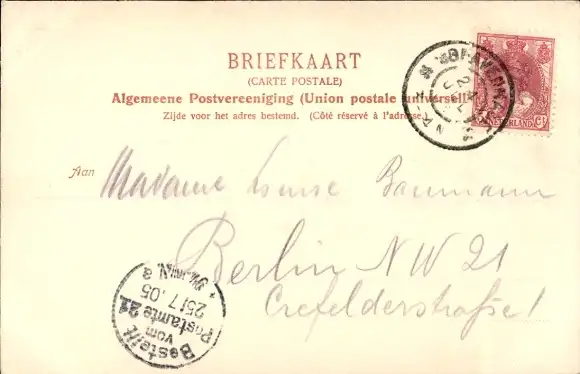 BRIEFKAART
(CARTE POSTALE)
Algemeene Postvereeniging (Union postale universelle)
Zijde voor het adres bestemd. (Côté réservé à l'adresse.)
NEDERLAND
Aan
Madame Louise Baumann
Berlin NW 21
Crefelderstraße 1
Bestellt
vom
Postamte 21
25/7.05